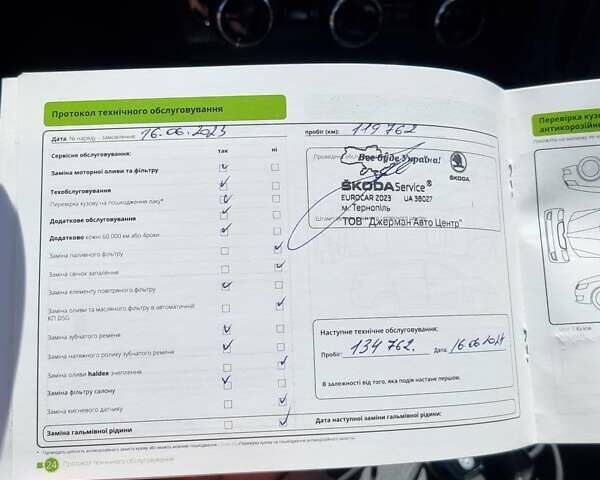 Протокол технічного обслуговування
Дата, № наряду - замовлення: 16.06.2023
пробіг (км): 119 762
Сервісне обслуговування: так ні
Заміна моторної оливи та фільтру
Техобслуговування
Перевірка кузову на пошкодження лаку*
Додаткове обслуговування
Додатково кожні 60.000 км або 4роки
Заміна паливного фільтру
Заміна свічок запалення
Заміна елементу повітряного фільтру
Заміна оливи та масляного фільтру в автоматичній
КП DSG
Заміна зубчатого ременя
Заміна натяжного ролику зубчатого ременя
Заміна оливи haldex зчеплення
Заміна фільтру салону
Заміна кисневого датчику
Заміна гальмівної рідини
Все буде Україна!
ŠKODA
ŠKODA Service®
EUROCAR 2023 UA 38027
м. Тернопіль
ТОВ "Джерман Авто Центр"
Наступне технічне обслуговування:
Пробіг: 134 762. Дата: 16.06.2024
В залежності від того, яка подія настане першою.
Дата наступної заміни гальмівної рідини:
24 Протокол технічного обслуговування
Перевірка кузо
антикорозійн